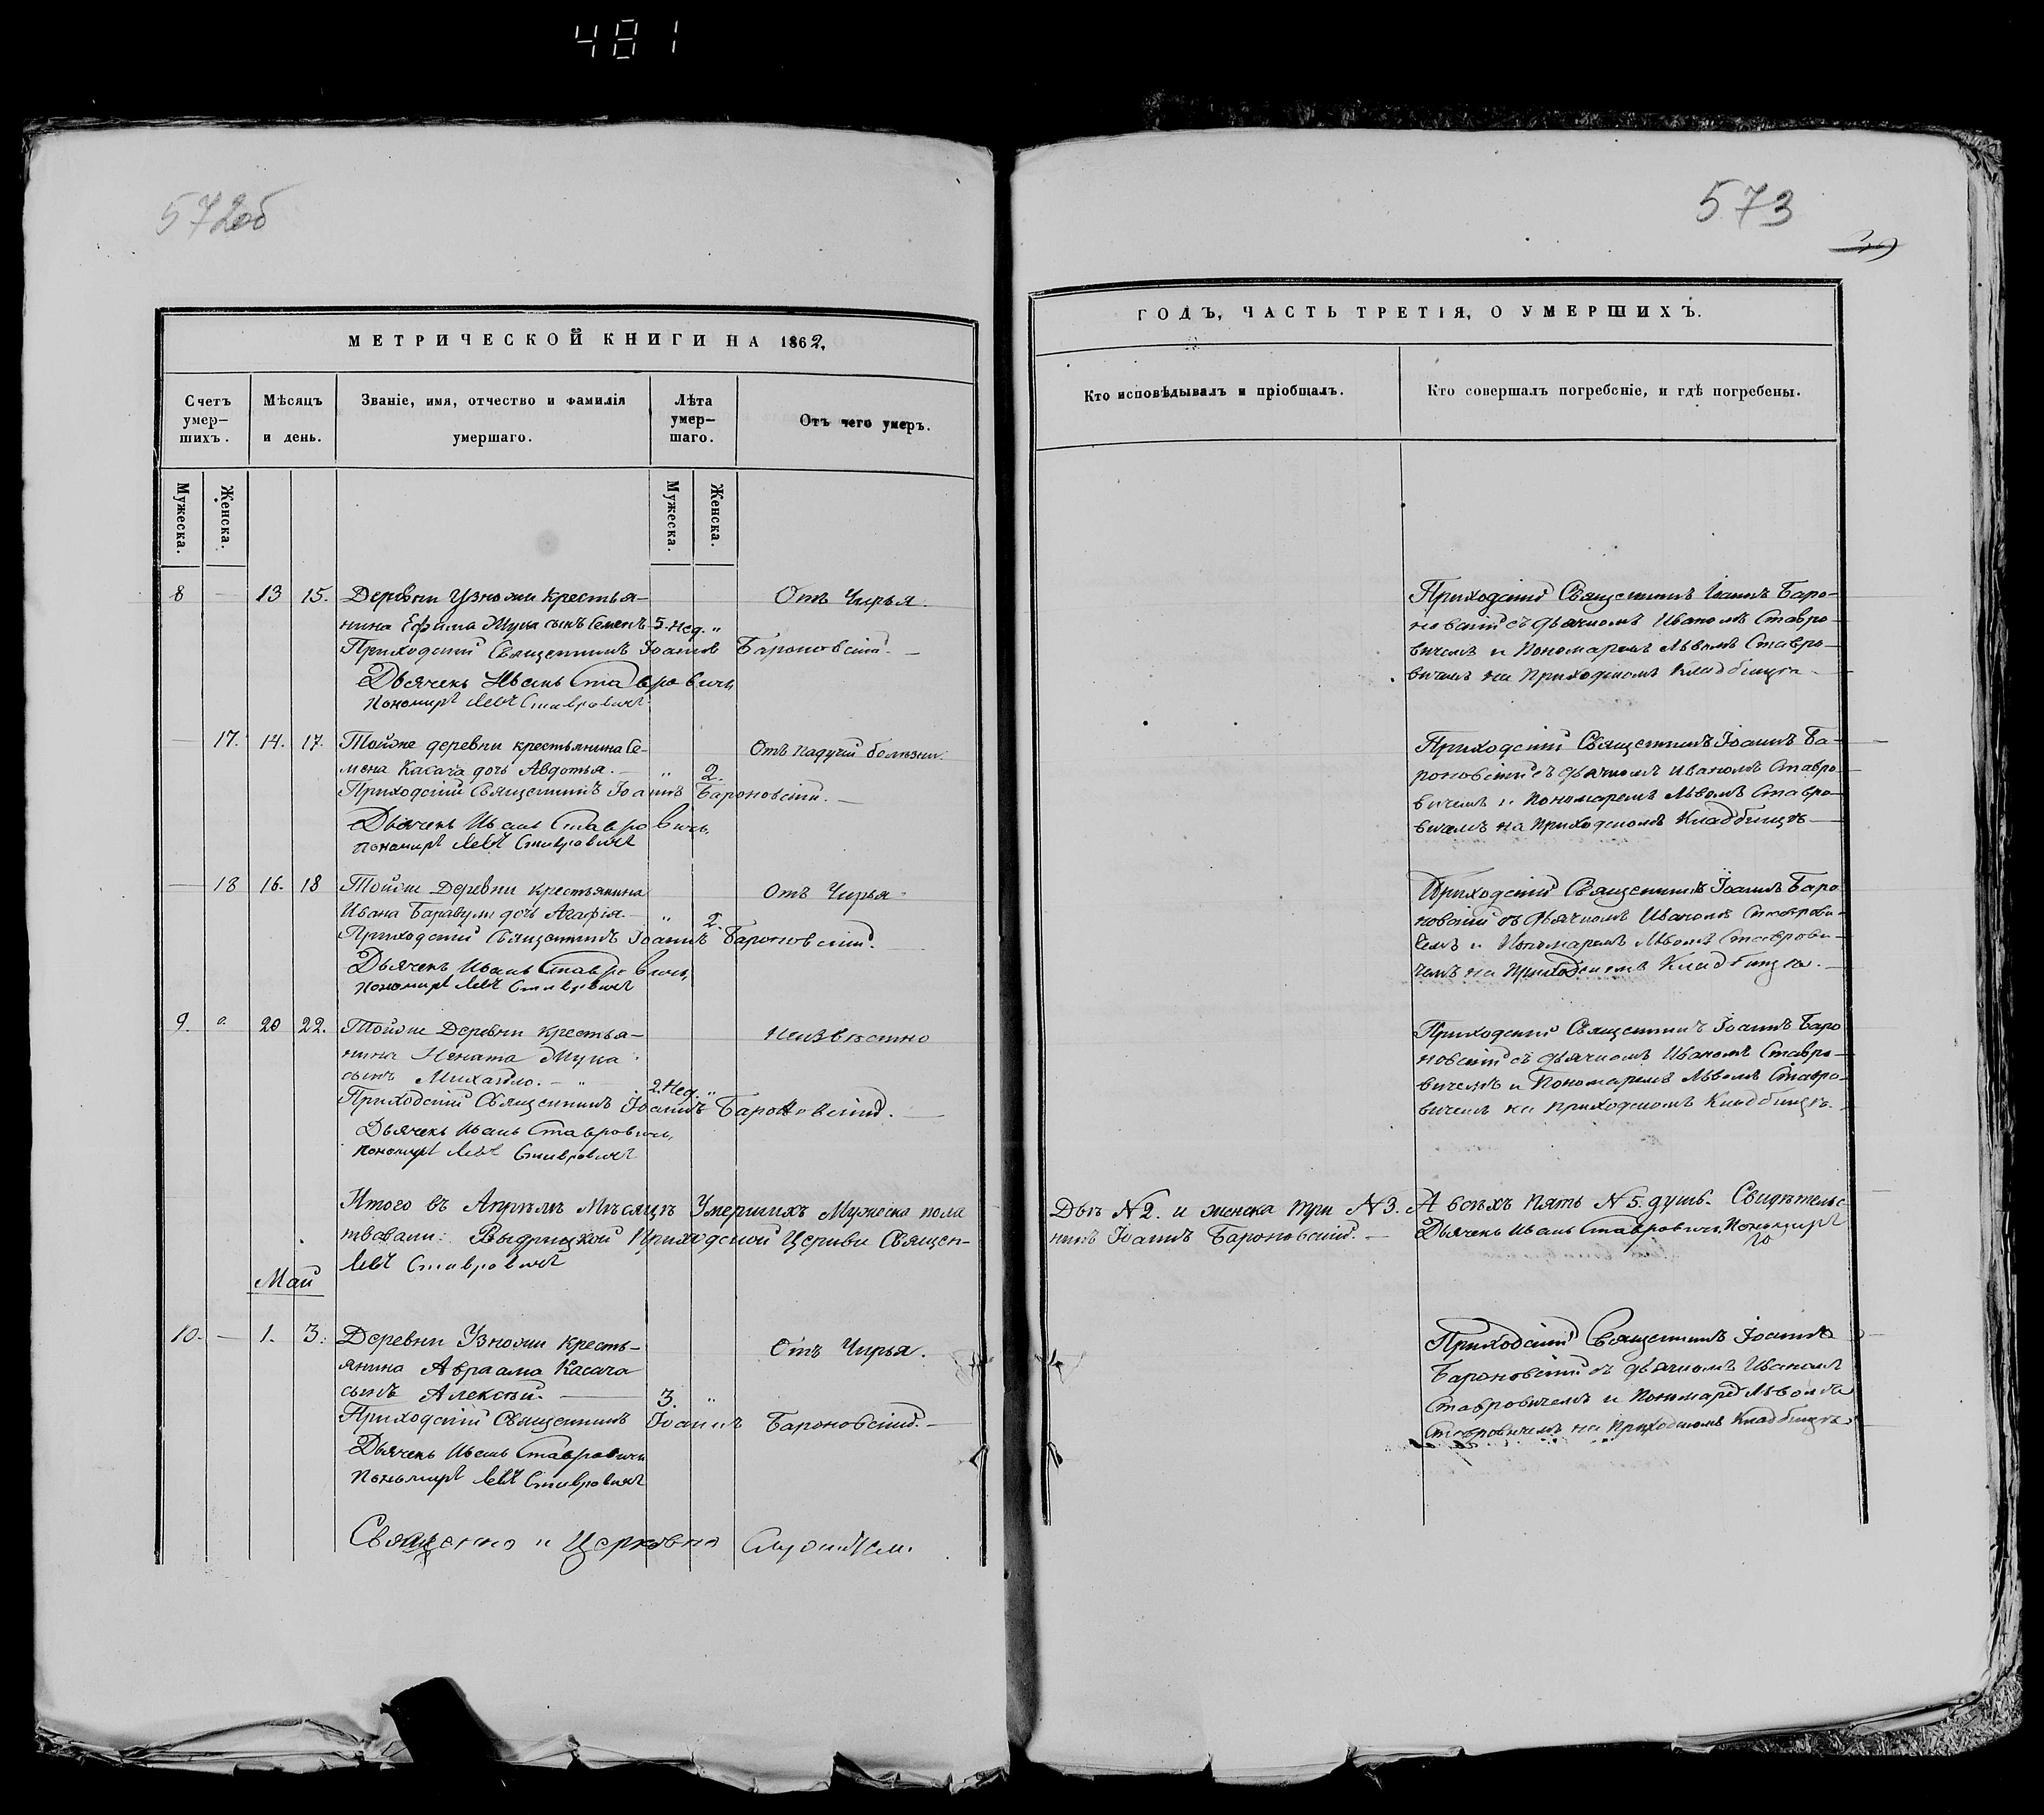 481
572об
МЕТРИЧЕСКОЙ КНИГИ НА 1862,
Счетъ умер-шихъ.
Мѣсяцъ и день.
Званіе, имя, отчество и фамилія умершаго.
Лѣта умер-шаго.
Отъ чего умеръ.
Мужеска.
Женска.
Мужеска.
Женска.
8 — 13 15. Деревни Узножи крестья- Отъ Чирья.
нина Ефима Мука сынъ Семенъ 5. Нед. "
Приходскій Священникъ Іоаннъ Бароновскій. —
Дьячекъ Иванъ Ставровичъ,
Пономарь Левъ Ставровичъ
— 17. 14. 17. Тойже деревни крестьянина Се- Отъ падучей болѣзни.
мена Касача дочь Авдотья. — " 2.
Приходскій Священникъ Іоаннъ Бароновскій. —
Дьячекъ Иванъ Ставровичъ,
пономарь Левъ Ставровичъ
— 18 16. 18 Тойже Деревни крестьянина Отъ Чирья
Ивана дочь Агафія. — " 2.
Приходскій Священникъ Іоаннъ Бароновскій. —
Дьячекъ Иванъ Ставровичъ,
пономарь Левъ Ставровичъ
9. 20 22. Тойже Деревни крестья- Неизвѣстно
нина Игната Мука
сынъ Михаило. — " 2 Нед. "
Приходскій Священникъ Іоаннъ Бароновскій. —
Дьячекъ Иванъ Ставровичъ,
пономарь Левъ Ставровичъ
Итого въ Апрѣлѣ Мѣсяцѣ Умершихъ Мужеска пола
твовали: Выдрицкой Приходской Церкви Священ-
Левъ Ставровичъ
Май
10. — 1. 3. Деревни Узножи кресть- Отъ Чирья.
янина Авраама Касача
сынъ Алексѣй. — 3. "
Приходскій Священникъ Іоаннъ Бароновскій. —
Дьячекъ Иванъ Ставровичъ
Пономарь Левъ Ставровичъ
Священно и Церковно Служители
573
ГОДЪ, ЧАСТЬ ТРЕТІЯ, О УМЕРШИХЪ.
Кто исповѣдывалъ и пріобщалъ.
Кто совершалъ погребеніе, и гдѣ погребены.
Приходскій Священникъ Іоаннъ Баро-
новскій съ дьячкомъ Иваномъ Ставро-
вичемъ и Пономаремъ Львомъ Ставро-
вичемъ на Приходскомъ Кладбищѣ. —
Приходскій Священникъ Іоаннъ Ба-
роновскій съ дьячкомъ Иваномъ Ставро-
вичемъ и Пономаремъ Львомъ Ставро-
вичемъ на Приходскомъ Кладбищѣ —
Приходскій Священникъ Іоаннъ Баро
новскій съ дьячкомъ Иваномъ Ставрови-
чемъ и Пономаремъ Львомъ Ставрови-
чемъ на Приходскомъ Кладбищѣ. —
Приходскій Священникъ Іоаннъ Баро
новскій съ дьячкомъ Иваномъ Ставро-
вичемъ и Пономаремъ Львомъ Ставро-
вичемъ на приходскомъ Кладбищѣ. —
Двѣ №2. и женска три №3. А всѣхъ пять №5. душъ. Свидѣтельс-
никъ Іоаннъ Бароновскій. — Дьячекъ Иванъ Ставровичъ, Пономарь
Приходскій Священникъ Іоаннъ
Бароновскій съ дьячкомъ Иваномъ
Ставровичемъ и Пономарем Львомъ
Ставровичемъ на Приходскомъ Кладбищѣ.